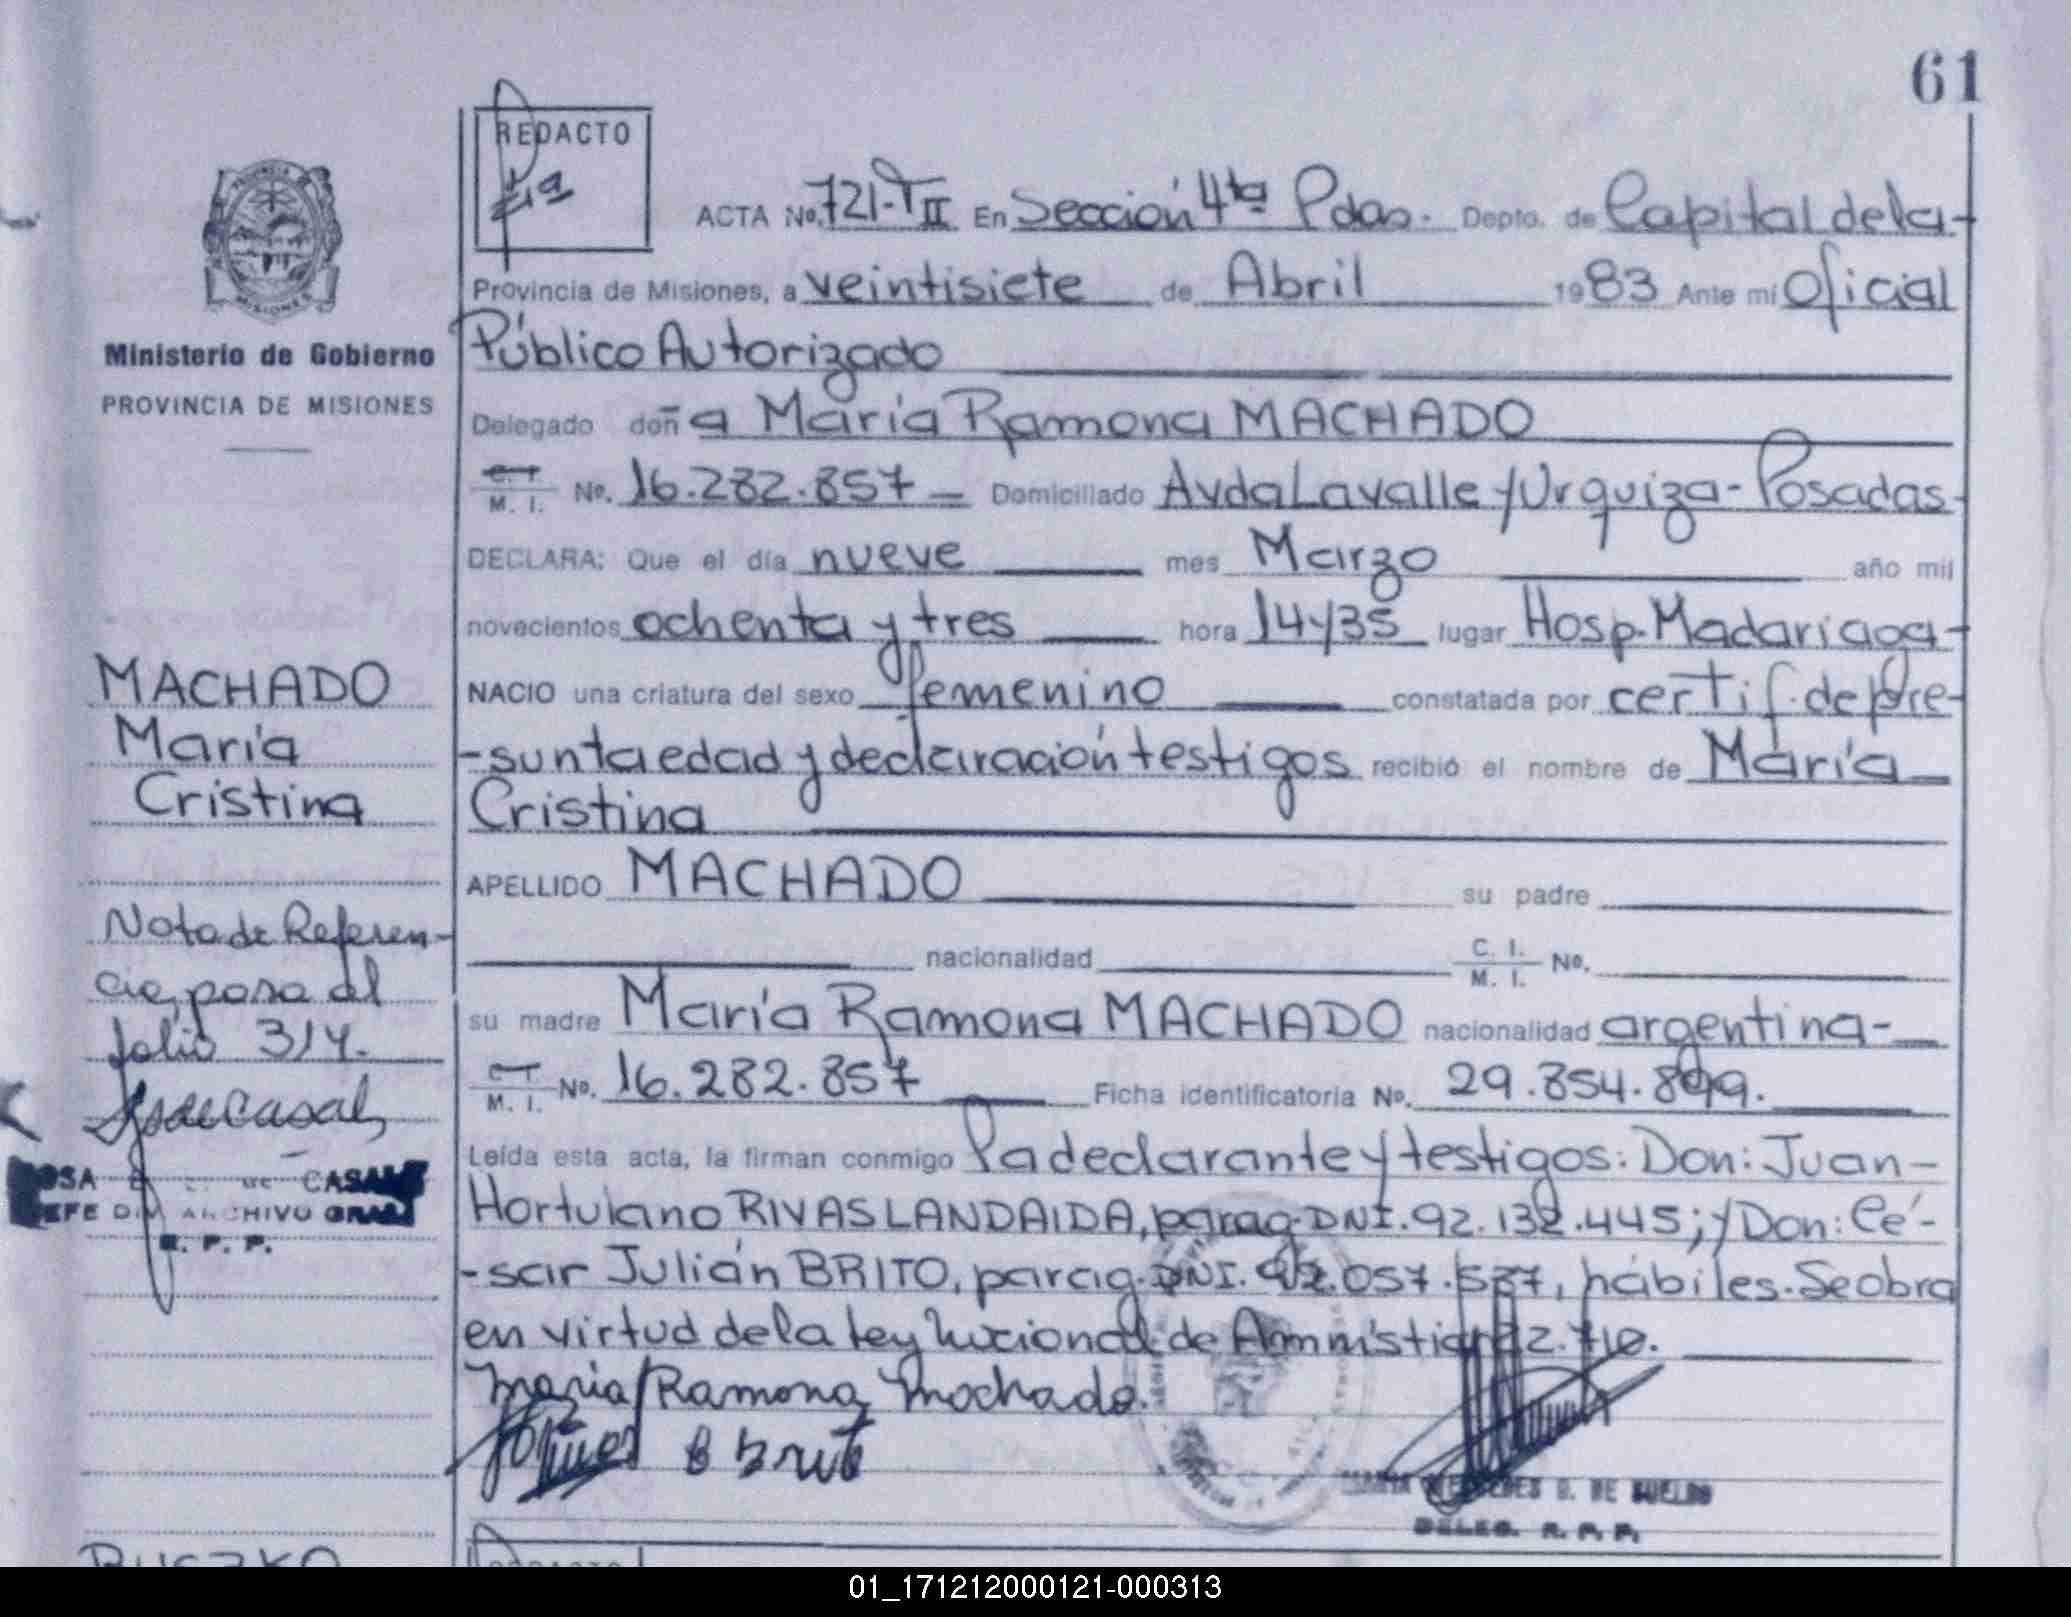 61
REDACTO
ACTA No. 721-T II En Sección 4ta Pdas. Depto. de Capital de la
Provincia de Misiones, a veintisiete de Abril 1983 Ante mi Oficial
Público Autorizado
Delegado doña María Ramona MACHADO
C.I. M. I. No. 16.282.857 Domiciliado Avda Lavalle y Urquiza - Posadas-
DECLARA: Que el día nueve mes Marzo año mil
novecientos ochenta y tres hora 14y35 lugar Hosp. Madariaga-
NACIO una criatura del sexo femenino constatada por certif. de pre-
-sunta edad y declaración testigos recibió el nombre de María
Cristina
APELLIDO MACHADO su padre
nacionalidad C. I. M. I. No.
su madre María Ramona MACHADO nacionalidad argentina-
C.I. M. I. No. 16.282.857 Ficha identificatoria No. 29.854.899.
Leída esta acta, la firman conmigo la declarante y testigos: Don: Juan-
Hortulano RIVAS LANDAIDA, parag. DNI. 92.132.445; y Don: Cé-
-sar Julián BRITO, parag. DNI. 92.057.587, hábiles. Se obra
en virtud de la ley Nacional de Amnistia 22.710.
María Ramona Machado.
C Brito
MARIA MERCEDES G. DE SUELDO
DELEG. R. P. P.
PROVINCIA DE
MISIONES
Ministerio de Gobierno
PROVINCIA DE MISIONES
MACHADO
María
Cristina
Nota de Referen-
cia, pasa al
folio 314.
ROSA DE CASALS
JEFE DIV ARCHIVO GRAL
R. P. P.
BUSZKO
REDACTO
01_171212000121-000313